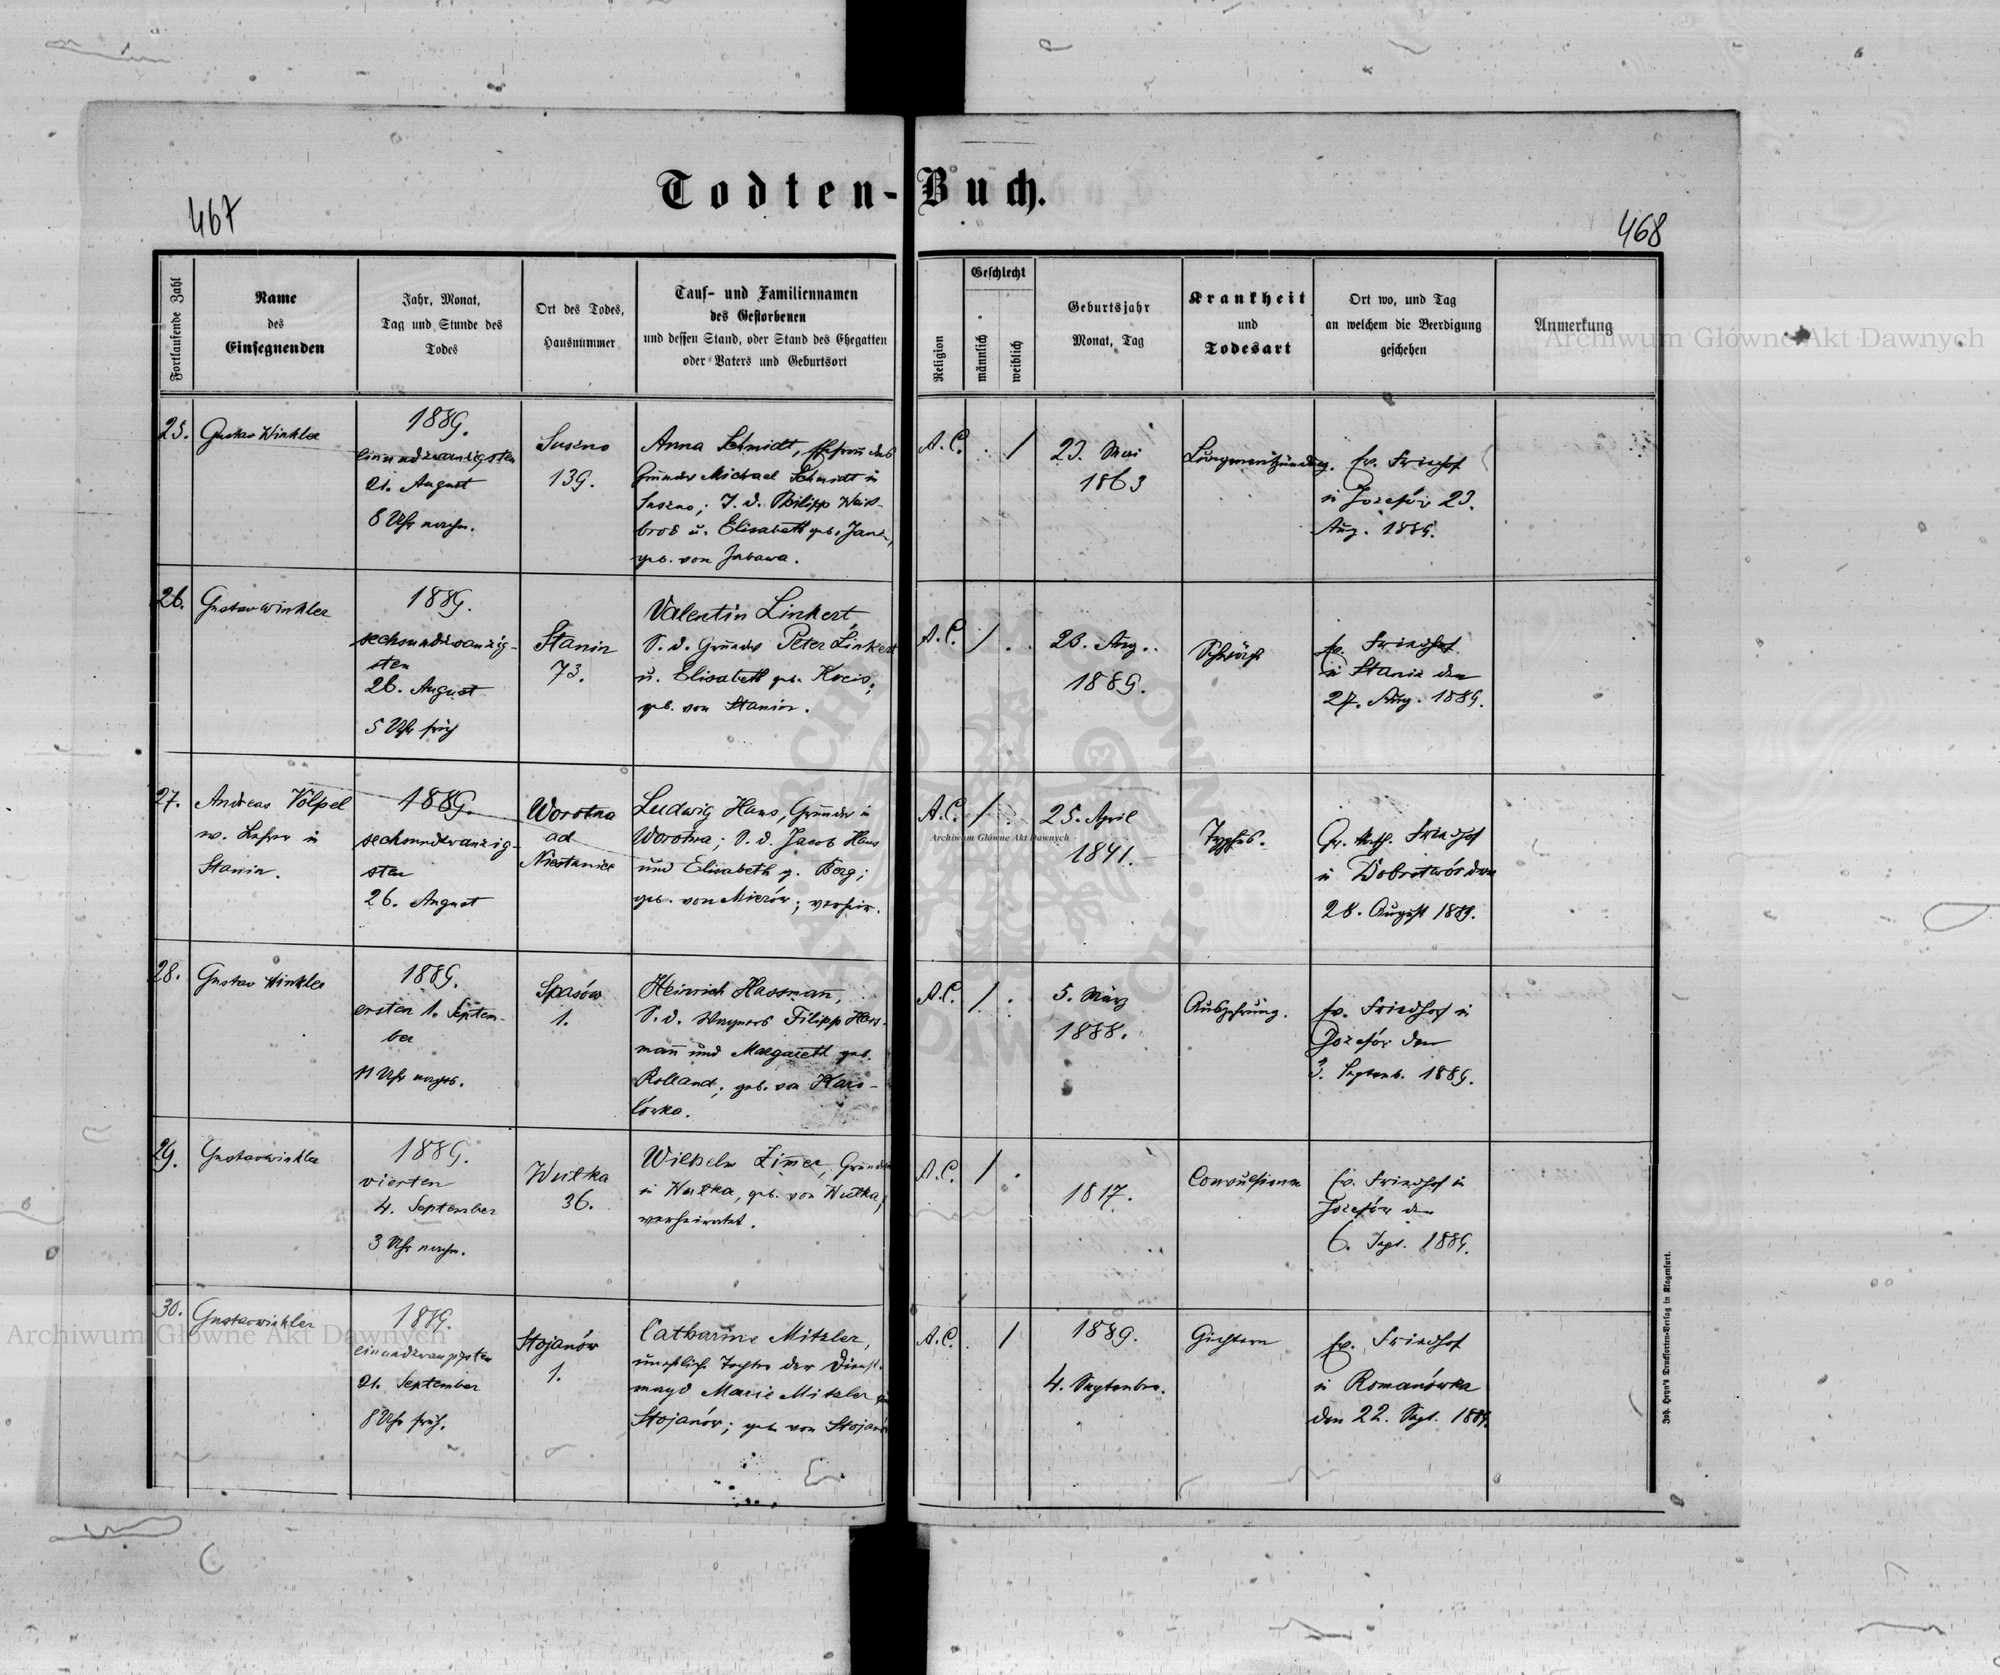 Todten-Buch.
467
468
Fortlaufende Zahl
Name
des
Einsegnenden
Jahr, Monat,
Tag und Stunde des
Todes
Ort des Todes,
Hausnummer
Tauf- und Familiennamen
des Gestorbenen
und dessen Stand, oder Stand des Ehegatten
oder Vaters und Geburtsort
Religion
Geschlecht
männlich
weiblich
Geburtsjahr
Monat, Tag
Krankheit
und
Todesart
Ort wo, und Tag
an welchem die Beerdigung
geschehen
Anmerkung
25.
Gustav Winkler
1889.
einundzwanzigsten
21. August
8 Uhr nachm.
Suszno
139.
Anna Schmidt, Ehefrau des
Grundw Michael Schmidt in
Suszno; T. d. Philipp Weiß-
brod u. Elisabeth geb.
geb. von
A. C.
. /
23. Mai
1863
Lungenentzündung.
Ev. Friedhof
in Józefów 23.
Aug. 1889.
26.
Gustav Winkler
1889.
sechsundzwanzig-
sten
26. August
5 Uhr früh
Stanin
73.
Valentin Linkert,
S. d. Grundw Peter Linkert
u. Elisabeth geb.
geb. von Stanin.
A. C.
/ .
23. Aug.
1889.
Schwäche
Ev. Friedhof
in Stanin den
27. Aug. 1889.
27.
Andreas Völpel
ev. Lehrer in
Stanin.
1889.
sechsundzwanzig-
sten
26. August
Worotna
ad
Niestanice
Ludwig Hans, Grundw in
Worotna; S. d. Jacob Hans
und Elisabeth g. Berg;
geb. von Mierów; verheir.
A. C.
/ .
25. April
1841.
Typhus.
Gr. kath. Friedhof
in Dobrotwór den
28. August 1889.
28.
Gustav Winkler
1889.
ersten 1. Septem-
ber
11 Uhr nachts.
Spasów
1.
Heinrich Hassmann,
S. d. Wagners Filipp Hass-
mann und Margareth geb.
Rolland; geb. von Karo-
lówka.
A. C.
/ .
5. März
1888.
Auszehrung.
Ev. Friedhof in
Józefów den
3. Septemb. 1889.
29.
Gustav Winkler
1889.
vierten
4. September
3 Uhr nachm.
Wulka
36.
Wilhelm Zimer, Grundw
in Wulka, geb. von Wulka,
verheiratet.
A. C.
/ .
1817.
Convulsionen
Ev. Friedhof in
Józefów den
6. Sept. 1889.
30.
Gustav Winkler
1889.
einundzwanzigsten
21. September
8 Uhr früh.
Stojanów
1.
Catharine Mitzler,
uneheliche Tochter der Dienst-
magd Marie Mitzler
Stojanów; geb. von Stojanów
A. C.
. /
1889.
4. September.
Gichtern
Ev. Friedhof
in Romanówka
den 22. Sept. 1889.
Joh. Heyn's Drucksorten-Verlag in Klagenfurt.
Archiwum Główne Akt Dawnych
Archiwum Główne Akt Dawnych
Archiwum Główne Akt Dawnych